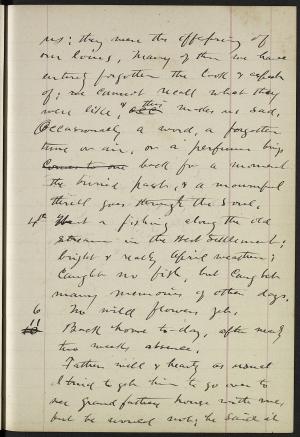 us; they were the offspring of
our loins, many of them we have
entirely forgotten the look & aspect
of; we cannot recall what they
were like, & this makes us sad,
Occasionally a word, a forgotten
tune or air, or a perfume brings
back for a moment
the buried past, & a mournful
thrill goes through the soul.
4th Went a fishing along the old
stream in the West Settlement;
bright & really April weather;
Caught no fish, but caught
many memories of other days.
6 No wild flowers yet.
11 Back home to-day, after nearly
two weeks absence.
Father well & hearty as usual
I tried to get him to go over to
see Grandfathers house with me,
but he would not; he said it